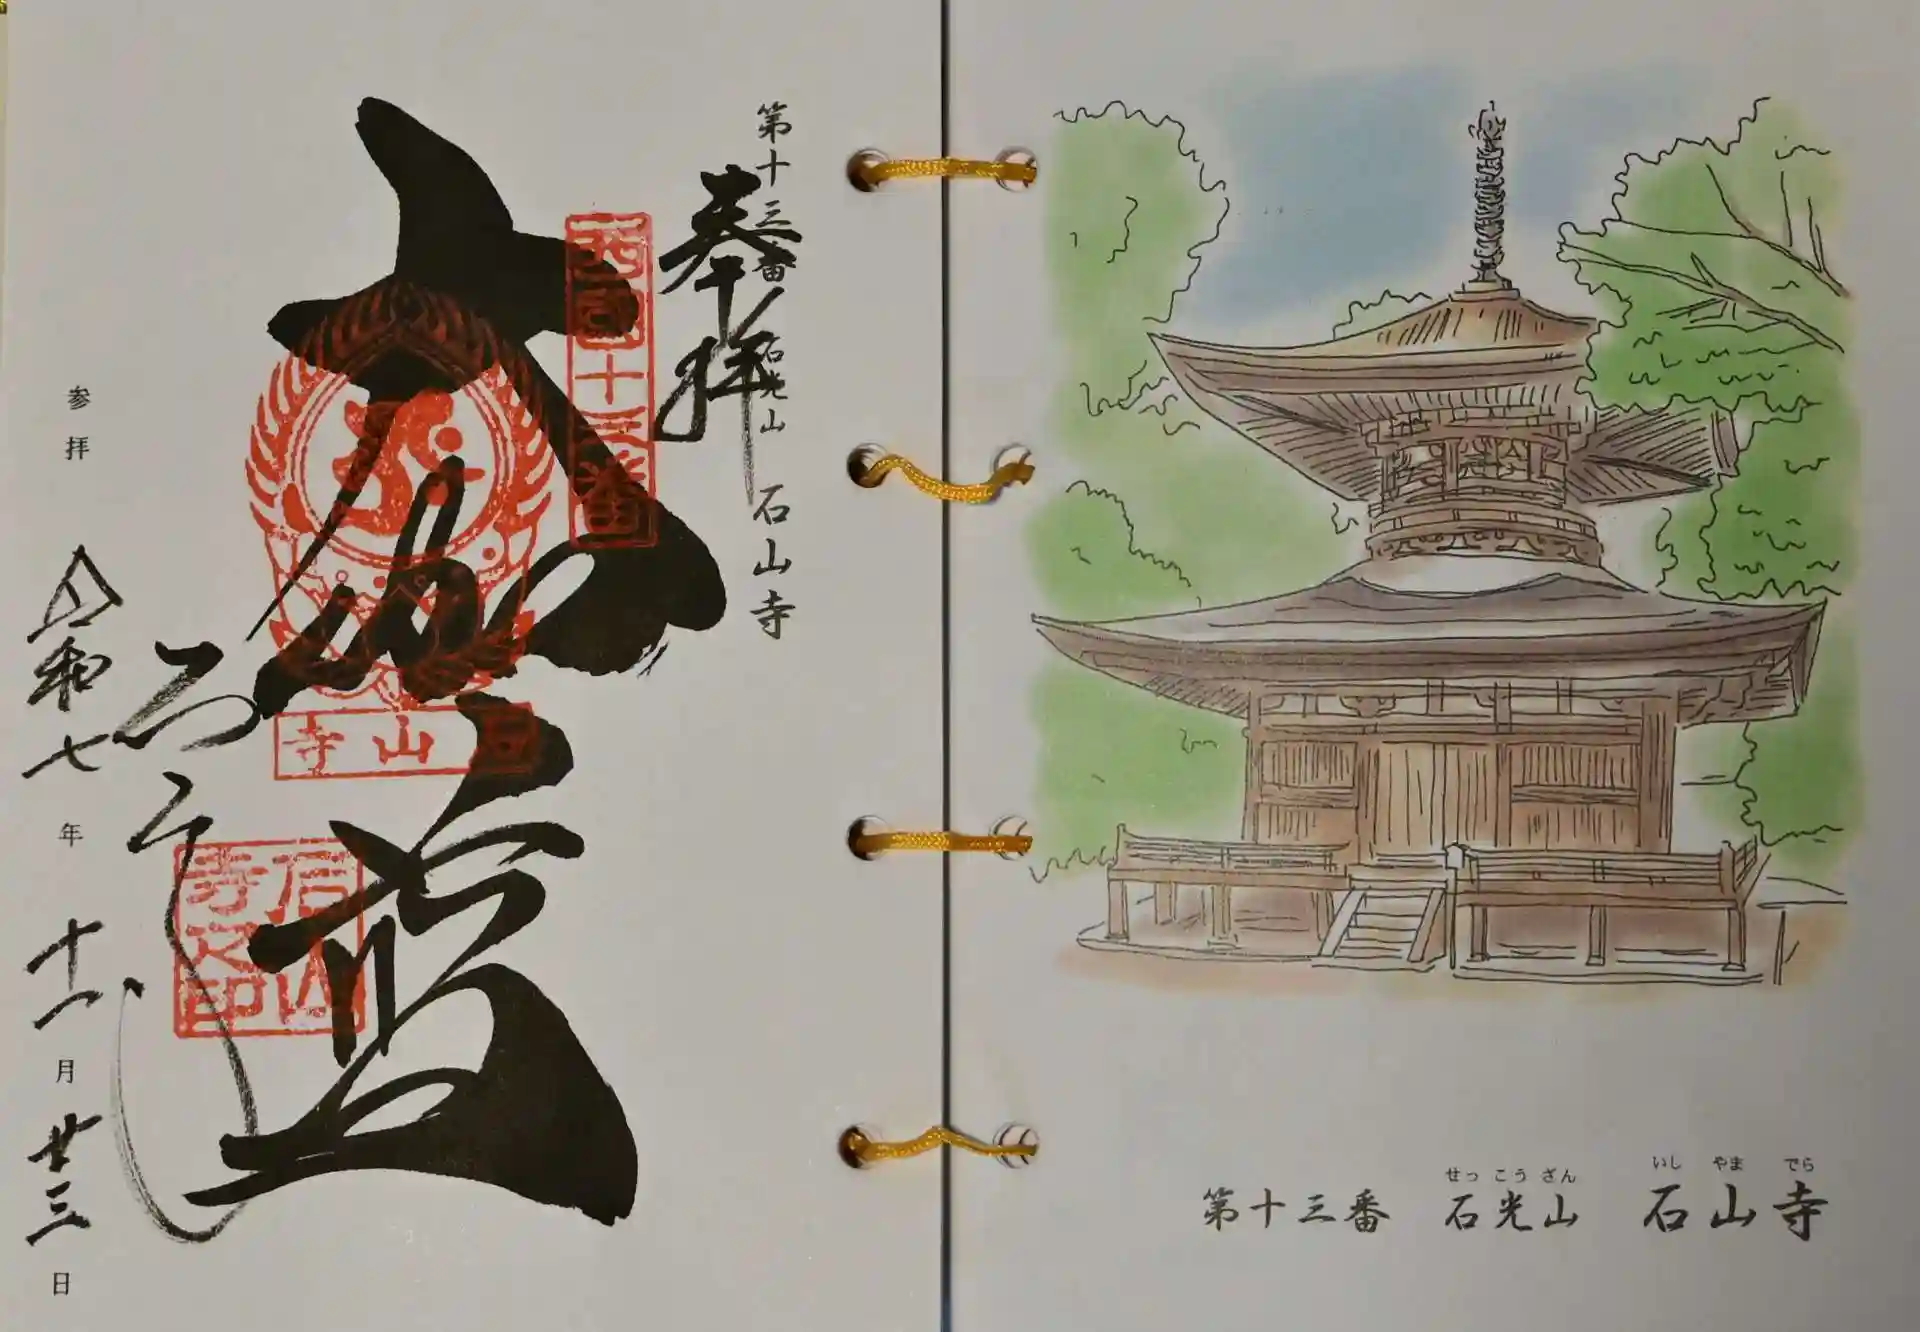 第十三番 石光山 石山寺
奉拝
西国十三番
大伽藍
石山寺
石山寺
石山寺之印
参拝 令和七年 十一月 廿三日
第十三番 石光山 石山寺
せっこうざん いしやまでら